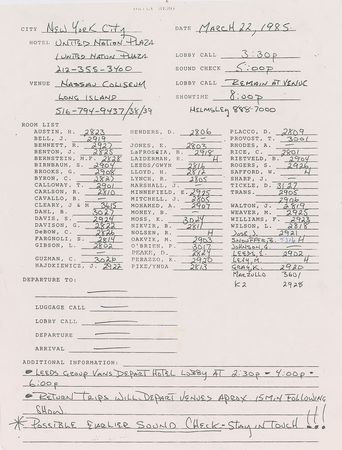 CITY NEW YORK CITY DATE MARCH 22, 1985
HOTEL UNITED NATION PLAZA
1 UNITED NATION PLAZA LOBBY CALL 3:30p
212-355-3400 SOUND CHECK 5:00p
VENUE NASSAU COLISEUM LOBBY CALL REMAIN AT VENUE
LONG ISLAND SHOWTIME 8:00p
516-794-9437/38/39 HELMSLEY 888-7000
ROOM LIST
AUSTIN, H. 2823 HENDERS, D. 2806 PLACCO, D. 2809
BELL, J. 2919 PROVOST, T. 3001
BENNETT, R. 2927 JONES, K. 2803 RHODES, A.
BENTON, J. 2825 LAFROGNIA, B. 2918 RICE, C. 2801
BERNSTEIN, M.F. 2828 LAIDERMAN, R. H RIETVELD, B. 2904
BIRNBAUM, S. 2904 LEEDS/GWYN ROGERS, S. 2926
BROOKS, G. 2908 LLOYD, H. 2812 SAFFORD, W. H
BYRON, C. 2823 LYNCH, B. 2805 SHARP, J.
CALLOWAY, T. 2901 MARSHALL, J. TICKLE, D. 3127
CARLSON, K. 2810 MINNEFIELD, E. 2925 TRANS, R. 2905
CAVALLO, R. MITCHELL, J. 2805 2906
CLEARY, J & M 3615 MONEGAR, A. 2907 WALTON, J. 2819
DAHL, B. 3027 MONEY, B. WEAVER, M. 2925
DAVIS, S. 2924 MOSS, K. 3024 WILLIAMS, F. 2923
DAVISON, G. 2822 NIKVIR, B. 2811 WILSON, D. 2808
DeBOW, C. 2826 NOLSEN, R. H JOSE, J. 2921
FARGNOLI, S. 2814 OAKVIK, M. 2903 H
GIBSON, L. 2802 O'BRIEN, P. 3017 JOHNSON, G.
PEAKE, D. 2824 LEEDS, S. 2902
GUZMAN, C. 3026 PERAZZO, K. 2920 LEVY, M. H
HAJDKIEWICZ, J. 2922 PIKE/YNDA 2813 GRAY, K. 2920
MARZULLO 3601
K2 2928
DEPARTURE TO:
LUGGAGE CALL
LOBBY CALL
DEPARTURE
ARRIVAL
ADDITIONAL INFORMATION:
• LEEDS GROUP VANS DEPART HOTEL LOBBY AT 2:30p - 4:00p -
6:00p
• RETURN TRIPS WILL DEPART VENUES APROX 15 MIN FOLLOWING
SHOW.
* POSSIBLE EARLIER SOUND CHECK - STAY IN TOUCH!!!